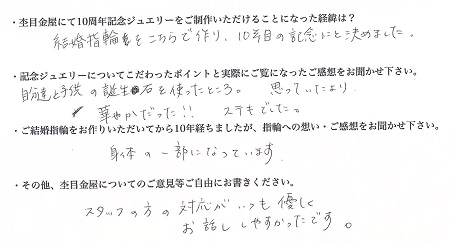 ・杢目金屋にて10周年記念ジュエリーをご制作いただけることになった経緯は？
結婚指輪をこちらで作り、10年目の記念にと決めました。
・記念ジュエリーについてこだわったポイントと実際にご覧になったご感想をお聞かせ下さい。
自分達と子供の誕生石を使ったところ。 思っていたより
華やかだった!! ステキでした。
・ご結婚指輪をお作りいただいてから10年経ちましたが、指輪への想い・ご感想をお聞かせ下さい。
身体の一部になっています
・その他、杢目金屋についてのご意見等ご自由にお書きください。
スタッフの方の対応がいつも優しく
お話ししやすかったです。